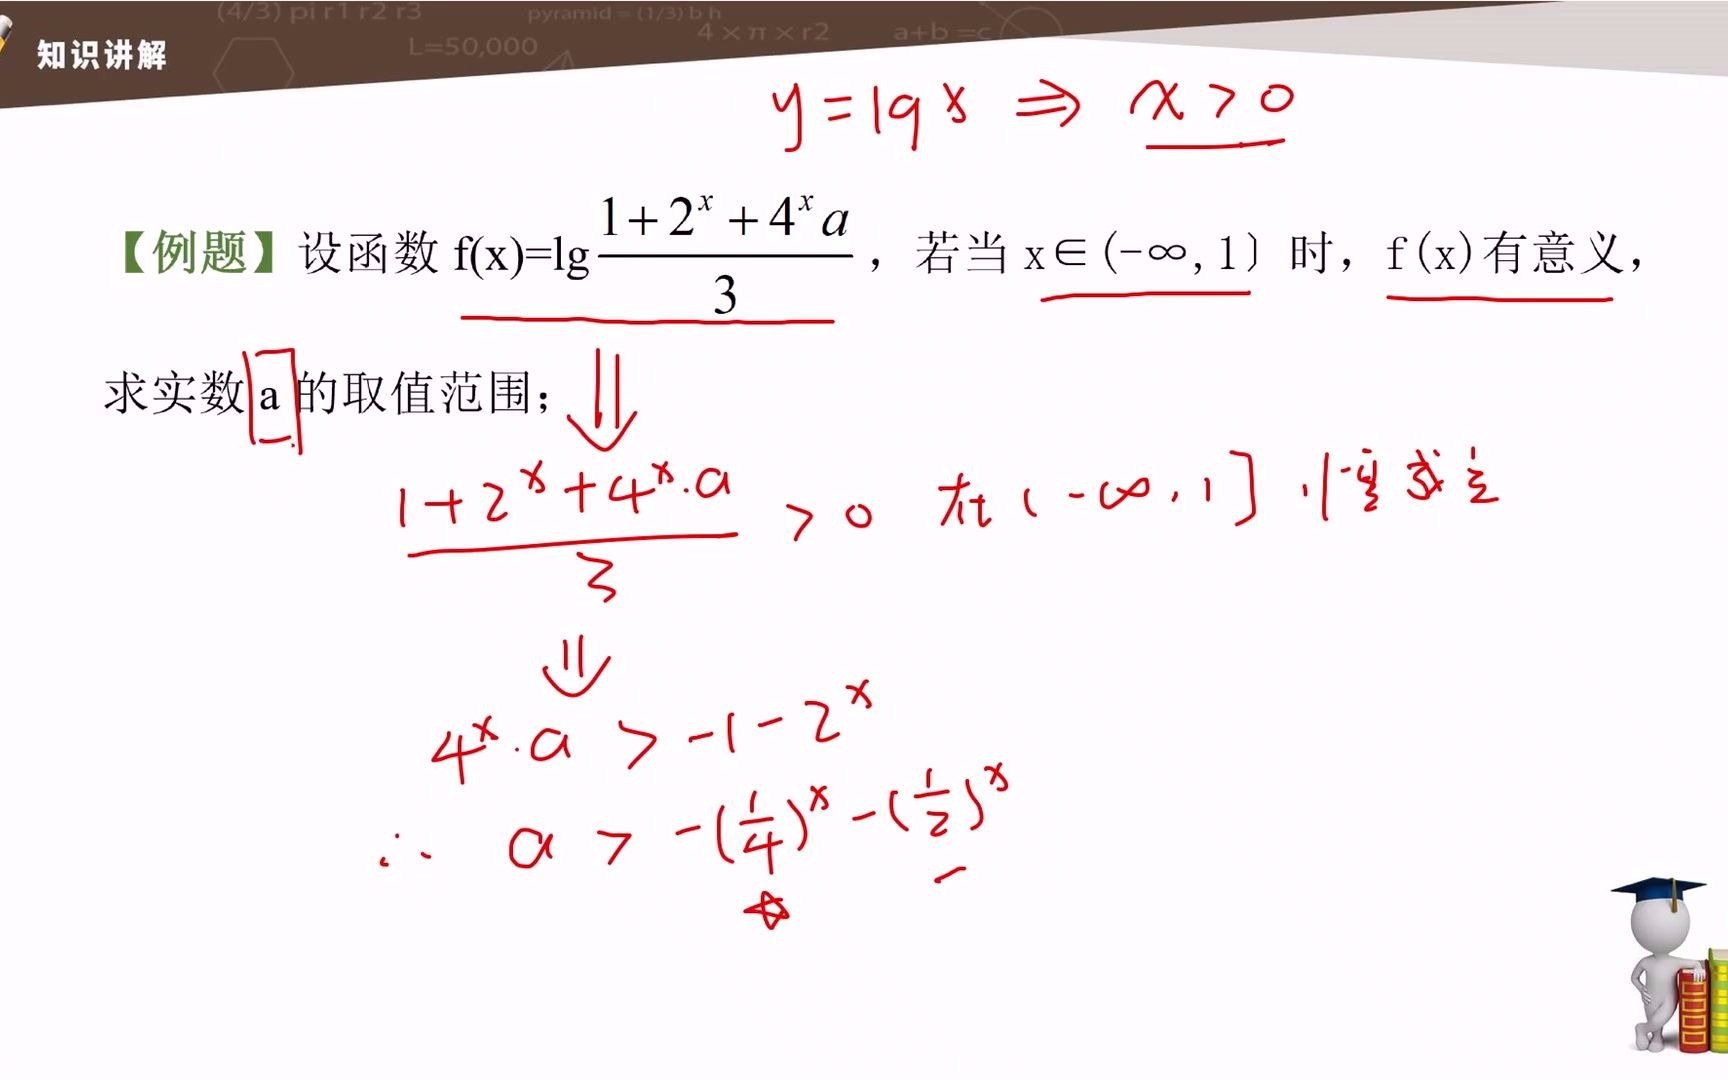 (4/3) pi r1 r2 r3
pyramid = (1/3) b h
L=50,000
4 × π × r2
a+b =c
知识讲解
y = lg x ⇒ x > 0
【例题】设函数 f(x)=lg (1+2^x+4^x a)/3 ，若当 x∈(-∞,1〕时，f(x)有意义，
求实数 a 的取值范围；
(1+2^x+4^x·a)/3 > 0 在 (-∞,1] 恒成立
4^x·a > -1-2^x
∴ a > -(1/4)^x -(1/2)^x